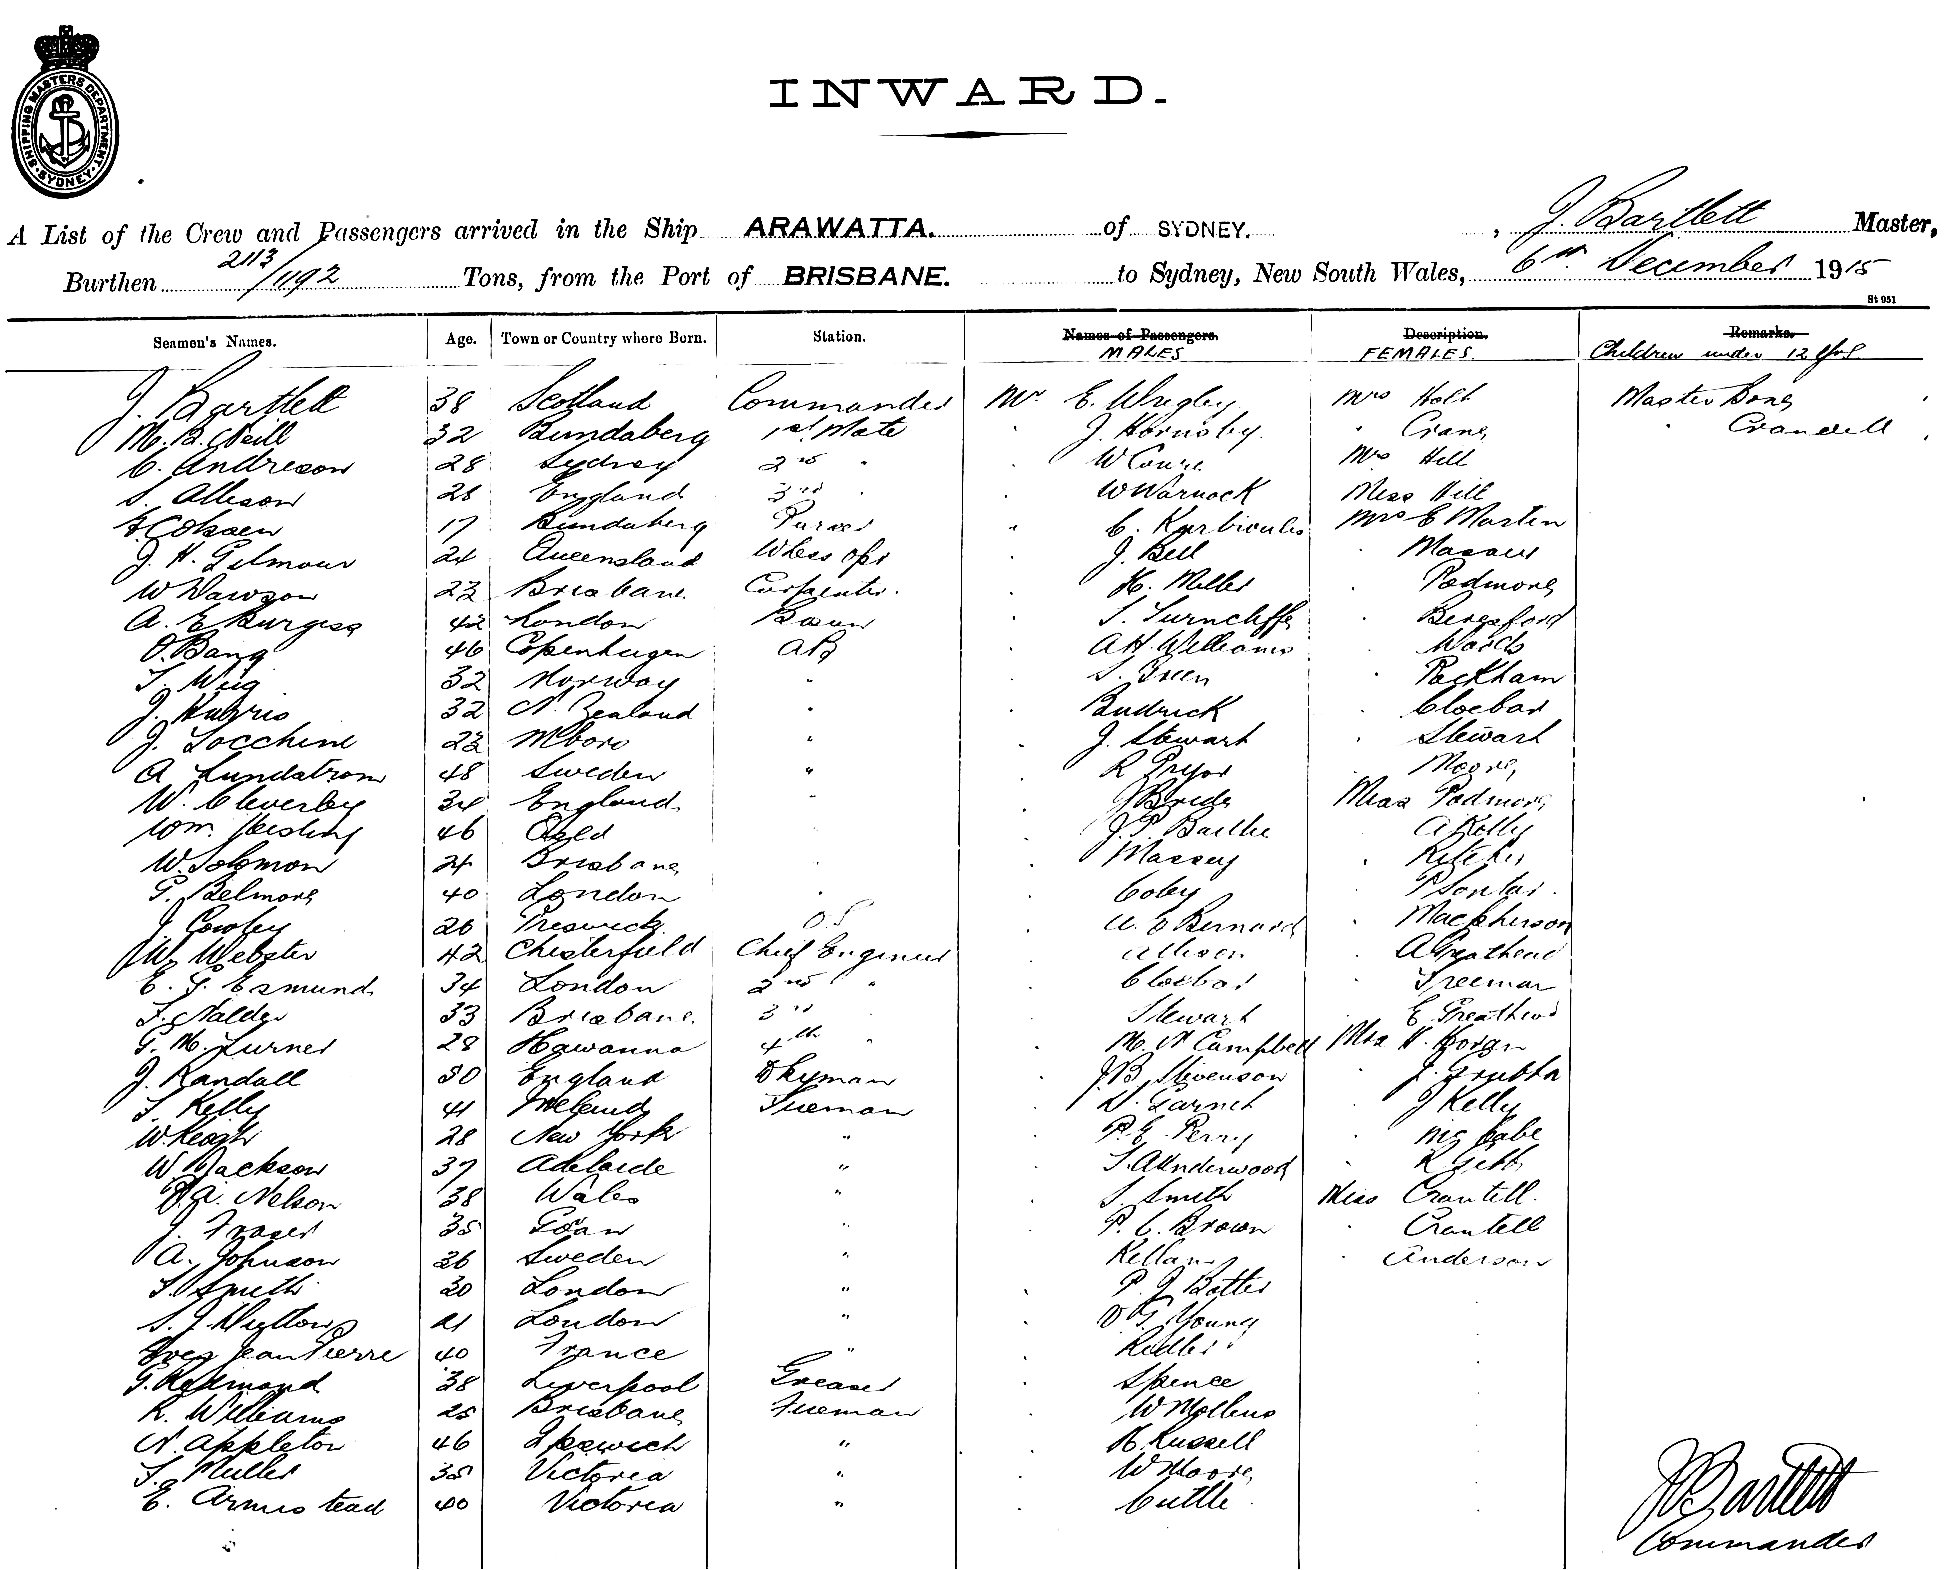 SHIPPING MASTERS DEPARTMENT. SYDNEY
INWARD.
A List of the Crew and Passengers arrived in the Ship ARAWATTA. of SYDNEY. , J. Bartlett Master,
Burthen 2113/1192 Tons, from the Port of BRISBANE. to Sydney, New South Wales, 6th December 1915
St 951
Seamen's Names. Age. Town or Country where Born. Station. Names of Passengers. Description. Remarks.
MALES FEMALES. Children under 12 yrs
J. Bartlett 38 Scotland Commander Mr E. Wrigley Mrs Holt Master Bone
M. B. Neill 32 Bundaberg 1st Mate " J. Hornsby. " Crane " Crandell
C. Andreson 28 Sydney 2nd " " W Mrs Hill
S. Allison 28 England 3rd " " W Warnock Miss Hill
17 Bundaberg Purser " C. Mrs E Martin
J. H. Gilmour 24 Queensland Wless opr " J. Bell "
W Dawson 23 Brisbane. Carpenter. " H. Miller " Podmore
A. E Burgess 42 London Bosun " S. Surncliffe " Beresford
O. Bang 46 Copenhagen AB " A H. Williams " Woods
32 Norway " " S. Green " Packham
J. Harris 32 N. Zealand " " Budrick " Cloebar
J. 23 M'boro " " J. Stewart " Stewart
A Lundstrom 48 Sweden " " R Pryor " Moore
W. Cleverley 34 England " " Miss Podmore
Wm. 46 Qsld " " J. P. Baillie " A Kelly
W. Solomon 24 Brisbane " " Massey "
G. Belmore 40 London " " Coley "
J. Cowley 26 Preswick. O S " Bernard " Macpherson
W. Webster 42 Chesterfield Chief Engineer " Allison " A Greathead
E. G. Esmund 34 London 2nd " " Cloebar " Freeman
F. Nalder 33 Brisbane. 3rd " " Stewart " E Greathead
G. M. Turner 28 Hawanna 4th " " M. N Campbell H.
J. Randall 30 England Dkyman " J. B. Stevenson " J.
Kelly 41 Ireland Fireman " D. Garnet " J Kelly
W. Keogh 28 New York " " P. E. Perry "
W Jackson 37 Adelaide " " S. A Underwood "
Nelson 38 Wales " " S Smith Miss Crantell.
J. Fraser 35 " " P. C. Brown " Crantell
A. Johnson 26 Sweden " " " Anderson
S. Smith 20 London " " P. J
21 London " " D G. Young
Yves Jean Pierre 40 France " "
G. Redmond 38 Liverpool Greaser " Spence
R. Williams 25 Brisbane Fireman " W Mollens
N. Appleton 46 Ipswich " " H. Russell
Muller 38 Victoria " " W Moore
E. Armistead 40 Victoria " " Cuttle
J Bartlett
Commander